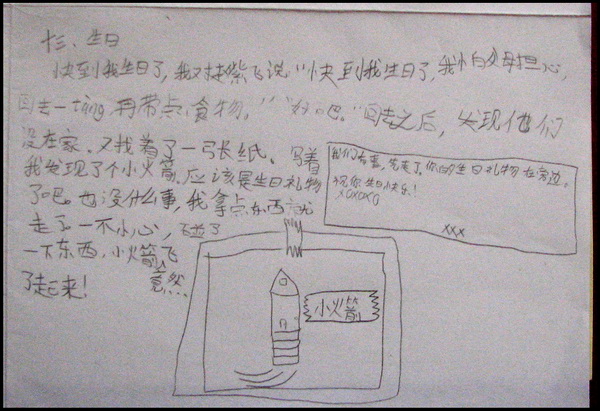 十三、生日
快到我生日了，我对紫飞说"快到我生日了，我怕父母担心，
回去一tàng，再带点食物。""好吧。"回去之后，发现他们
没在家。又找着了一张纸。写着
我发现了个小火箭。应该是生日礼物
了吧。也没什么事，我拿点东西就
走了。一不小心，碰了
一下东西，小火箭飞
了起来！
竟然
我们有事，先走了，你的生日礼物在旁边。
祝你生日快乐！
XOXOXO
XXX
小火箭